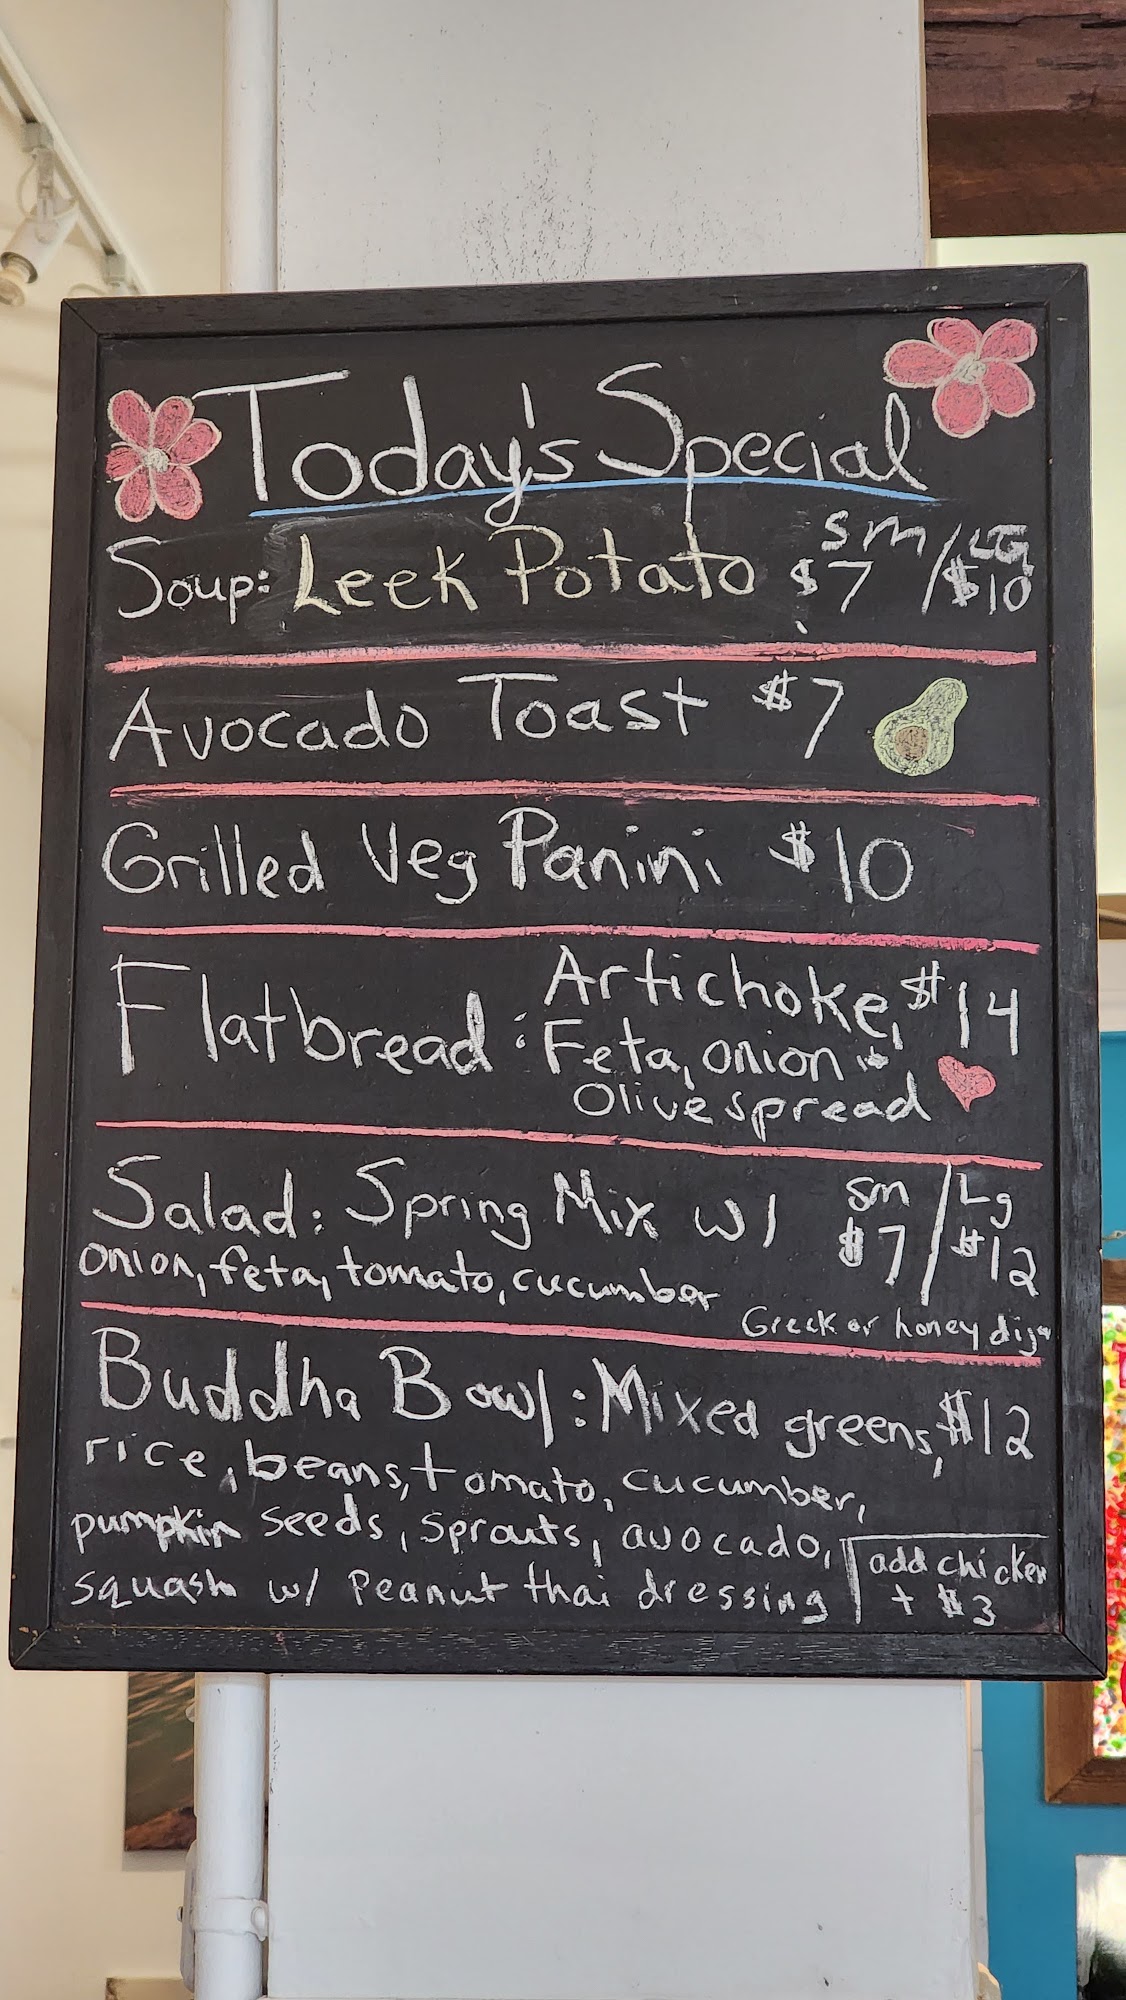 Today's Special
SM / LG
Soup: Leek Potato $7 / $10
Avocado Toast $7
Grilled Veg Panini $10
Flatbread: Artichoke, $14
Feta, onion +
Olive spread
Salad: Spring Mix w/ sm / Lg
$7 / $12
onion, feta, tomato, cucumber
Greek or honey dijon
Buddha Bowl: Mixed greens, $12
rice, beans, tomato, cucumber,
pumpkin seeds, sprouts, avocado,
squash w/ Peanut thai dressing
add chicken
+ $3